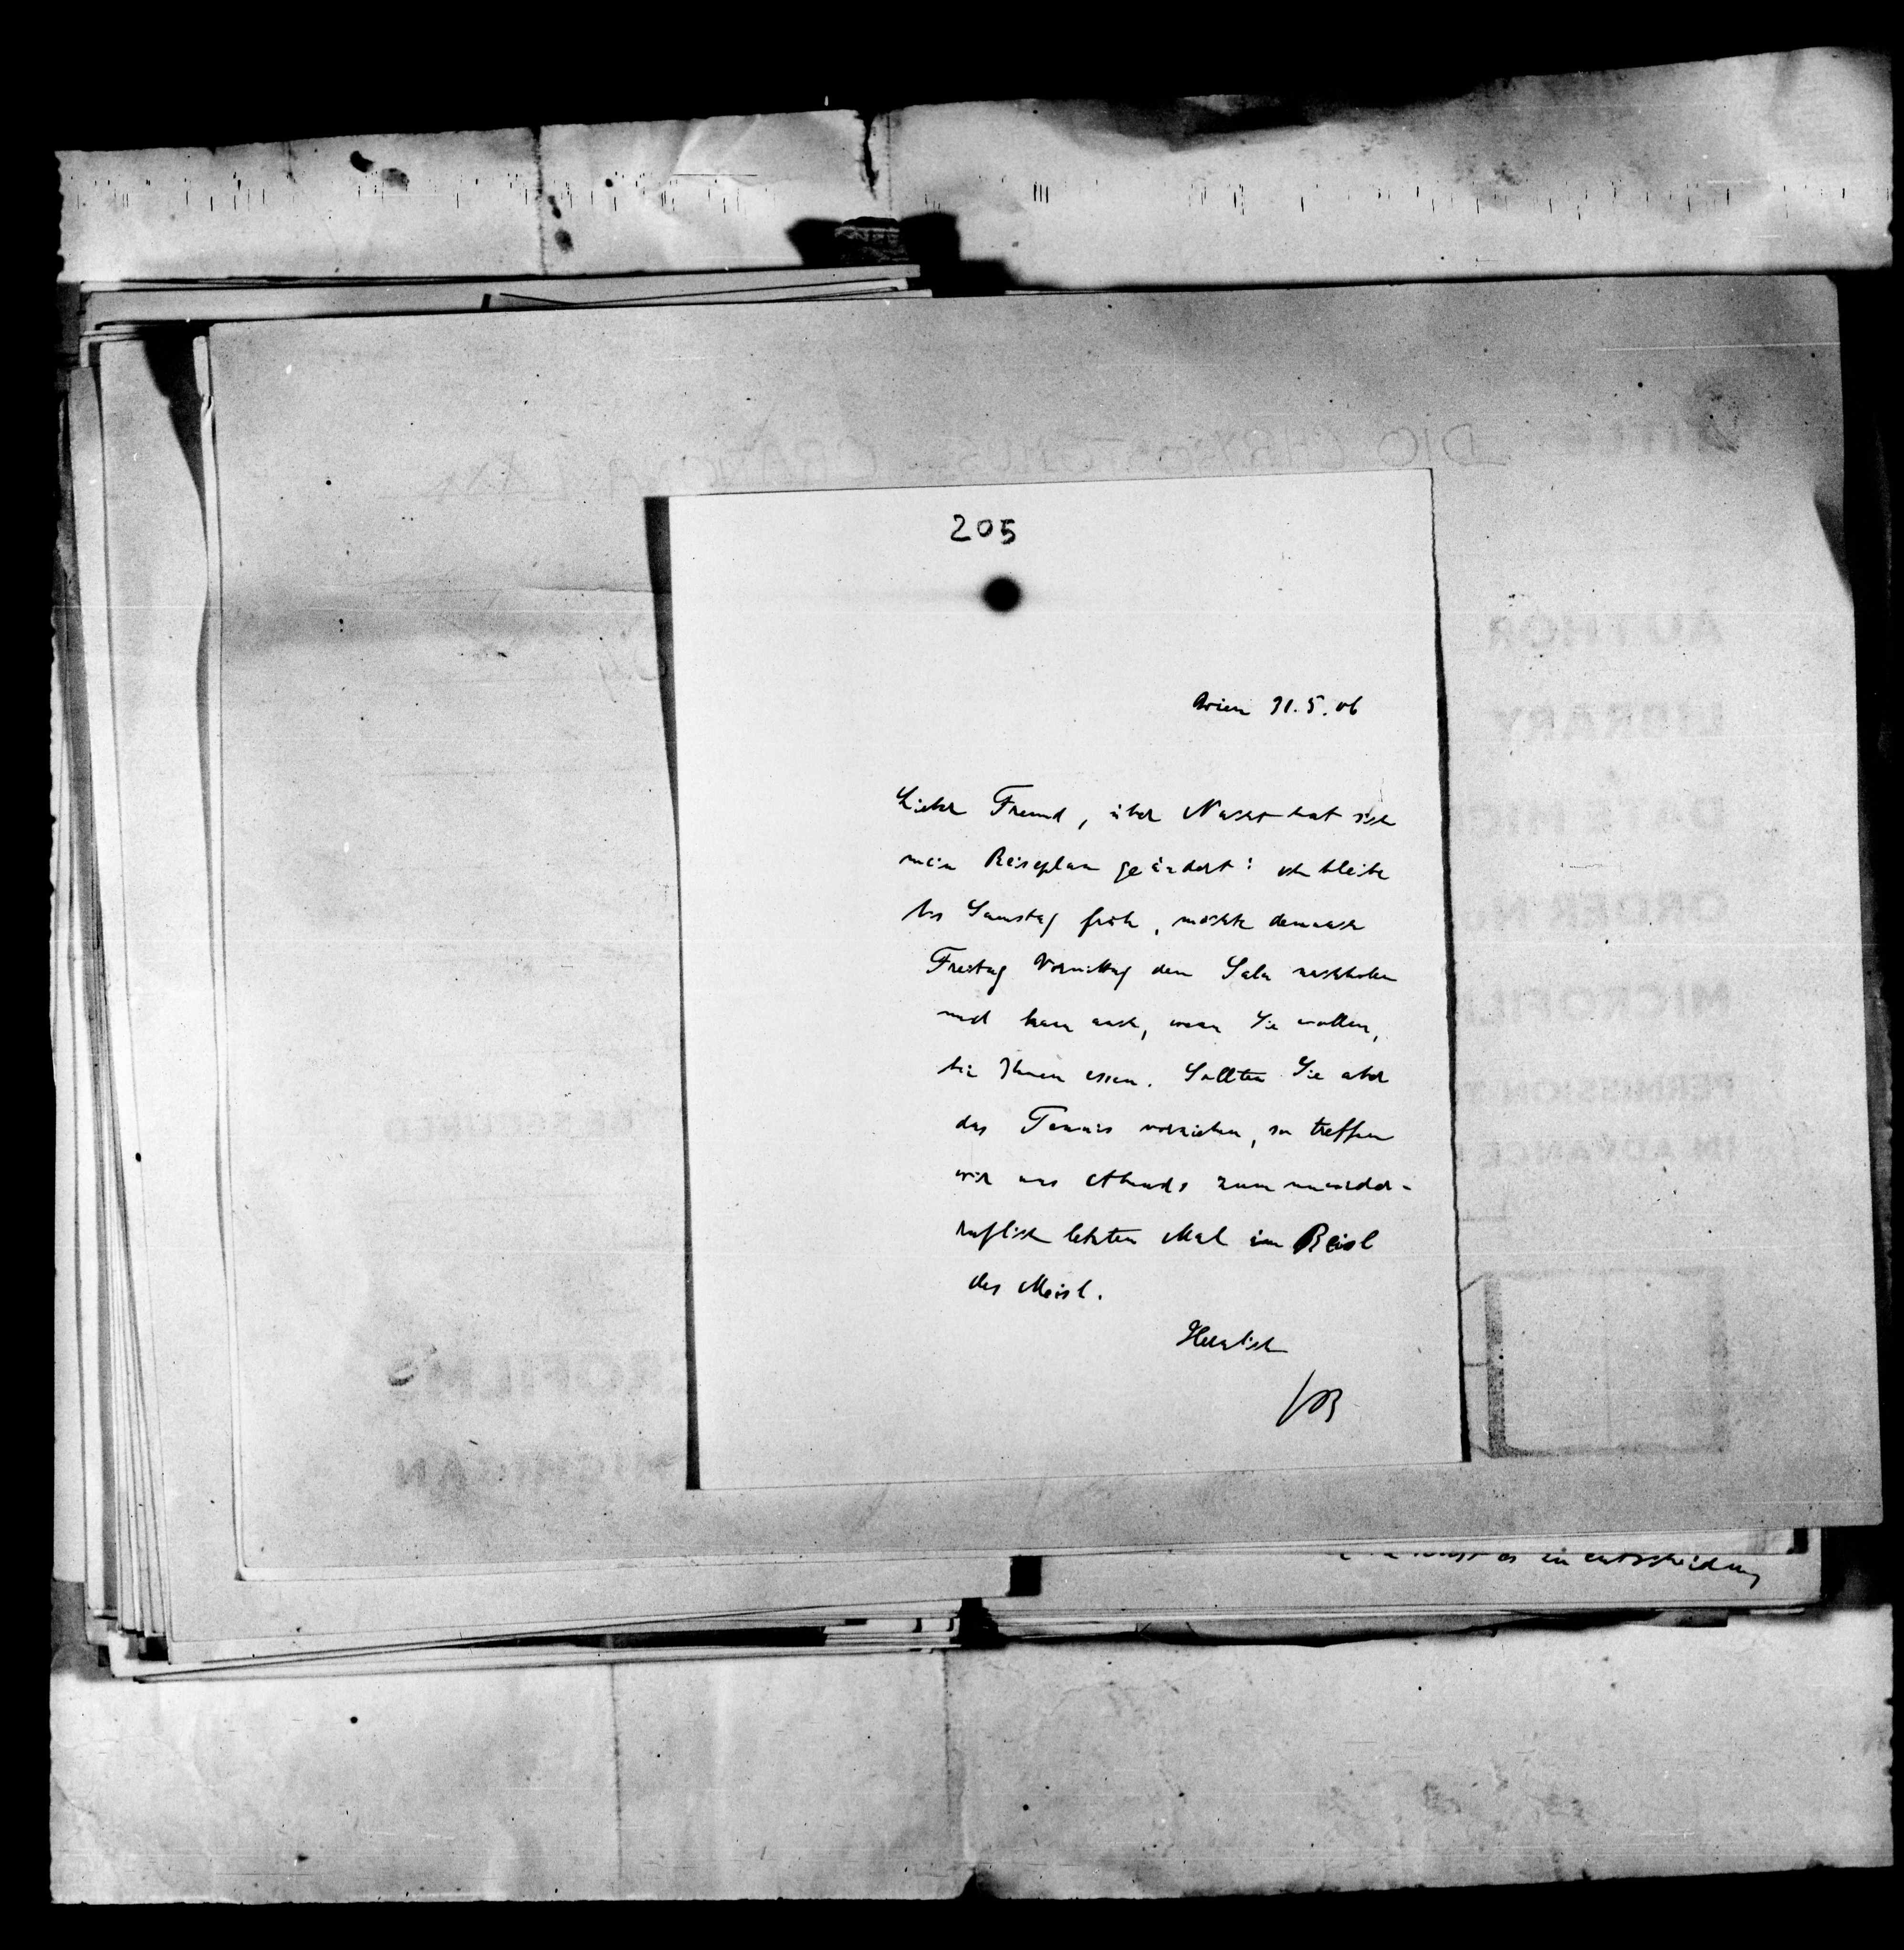 DIO CHRYSOSTOMUS ORATIONA LXX
TITLE
205
AUTHOR
LIBRARY
Wien 31.5.06
Lieber Freund, über Nacht hat sich
mein Reiseplan geändert: ich bleibe
bis Samstag früh, möchte demnach
Freitag Vormittag den Sala nachholen
und kann auch, wenn Sie wollen,
bei Ihnen essen. Sollten Sie aber
das Tennis vorziehen, so treffen
wir uns Abends zum unwieder-
ruflich letzten Mal im Beisl
des Meisl.
Herzlich
HB
DATE MICR
ORDER NU
MICROFILM
PERMISSION T
BE SECURED
IN ADVANCE
ROFILMS
MICHIGAN
es zu entscheiden